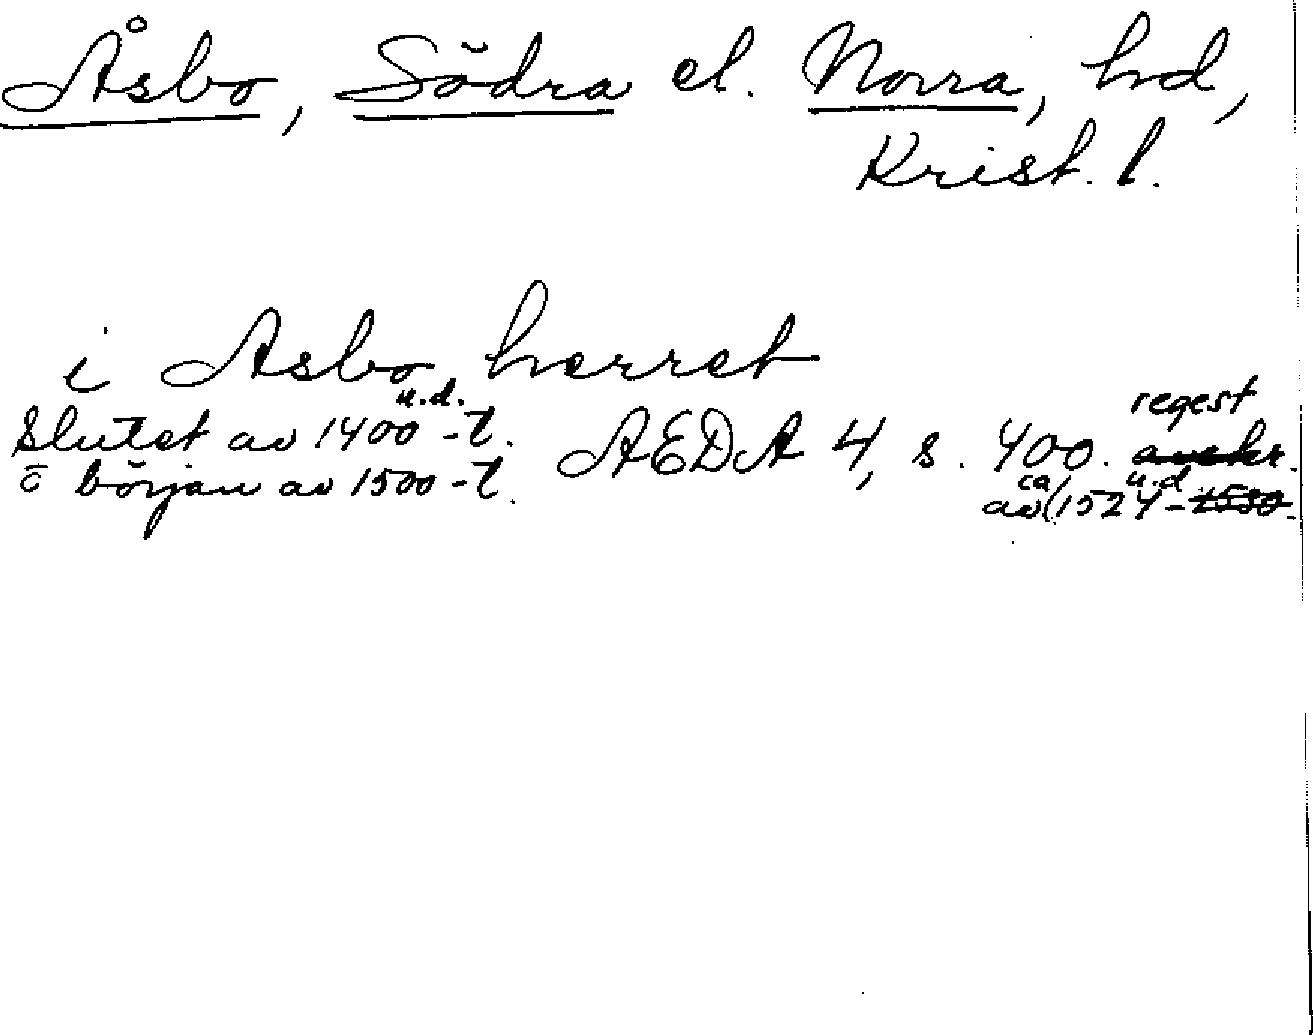 Åsbo, Södra el. Norra, hd,
Krist. l.
i Asbo herret
u.d.
Slutet av 1400-t. AEDA 4, s. 400. regest avskr.
o början av 1500-t. av ca 1524 u.d. - 1530